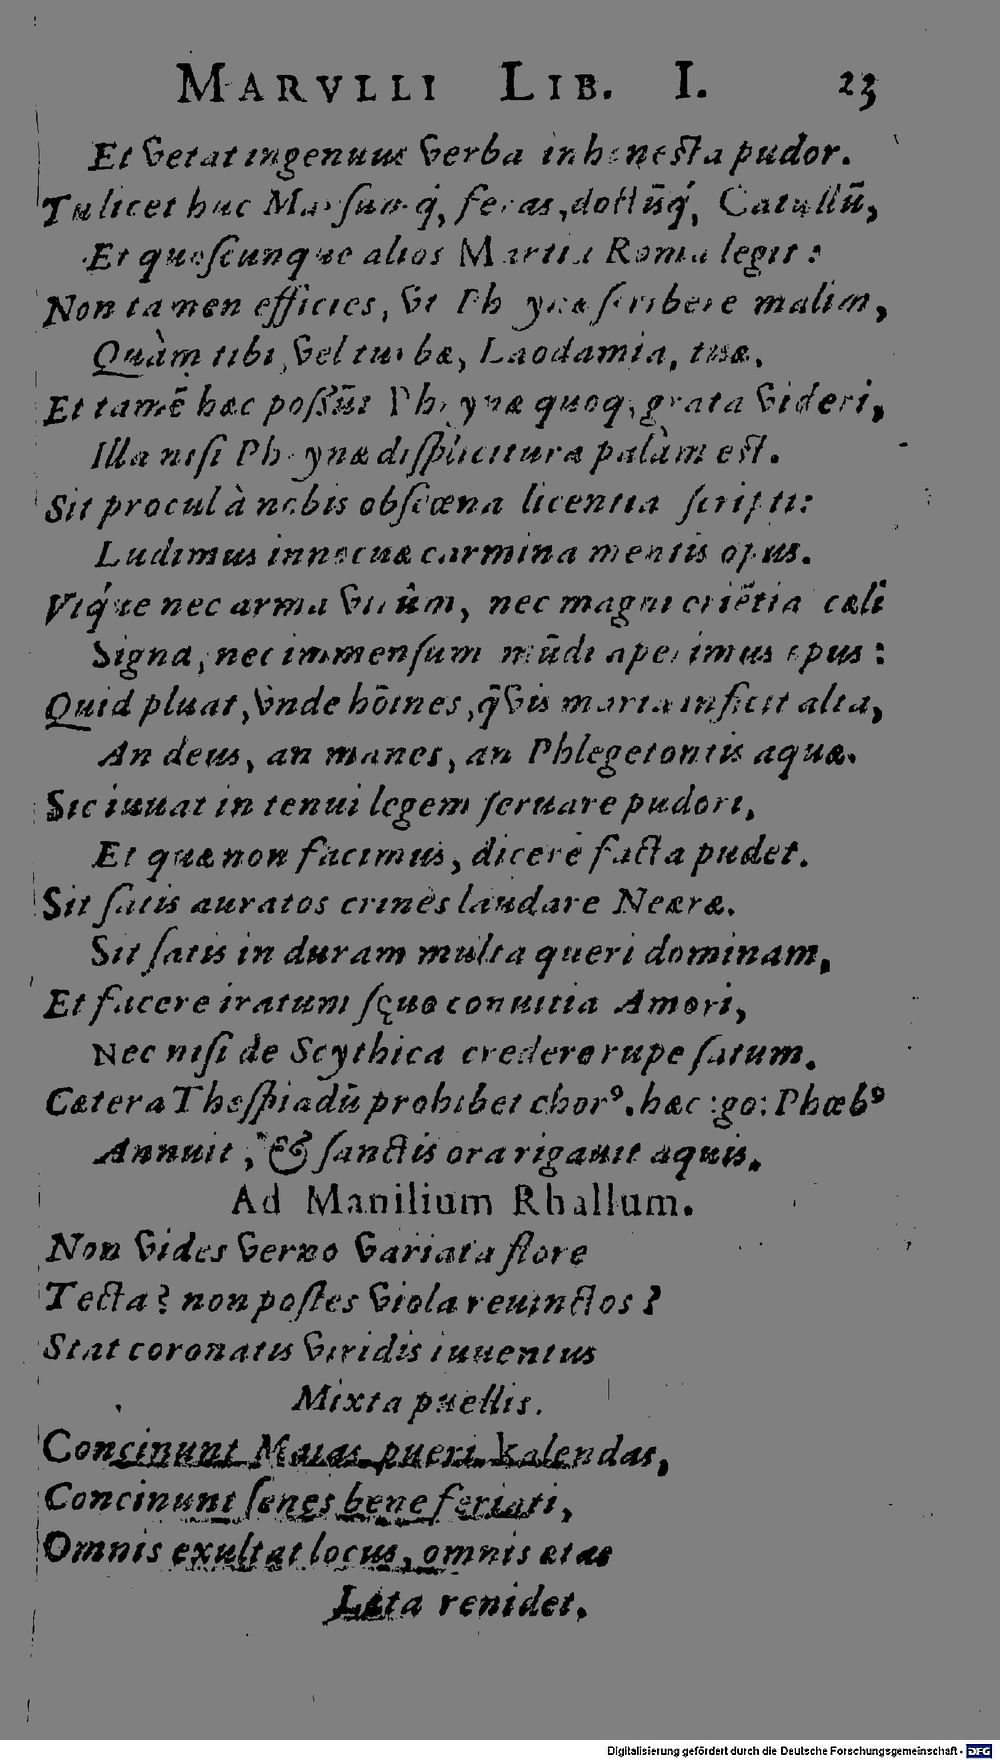 MARVLLI LIB. I. 23
Et vetat ingenuus verba inhonesta pudor.
Tu licet huc Marsumq́, feras, doctūq́, Catullū,
Et quoscunque alios Martia Roma legit:
Non tamen efficies, vt Phrynæ scribere malim,
Quàm tibi, vel turbæ, Laodamia, tuæ,
Et tamē hæc possūt Phrynæ quoq, grata videri,
Illa nisi Phrynæ displicitura palàm est.
Sit procul à nobis obscœna licentia scripti:
Ludimus innocuæ carmina mentis opus.
Vtq́ue nec arma virûm, nec magni oriētia cæli
Signa, nec immensum mūdi aperimus opus:
Quid pluat, vnde hōines, q̄ vis maria inficit alta,
An deus, an manes, an Phlegetontis aquæ.
Sic iuuat in tenui legem seruare pudori,
Et quæ non facimus, dicere facta pudet.
Sit satis auratos crines laudare Neæræ.
Sit satis in duram multa queri dominam,
Et facere iratum sęuo conuitia Amori,
Nec nisi de Scythica credere rupe satum.
Cætera Thespiadū prohibet chorꝰ. hæc :go: Phœbꝰ
Annuit, & sanctis ora rigauit aquis.
Ad Manilium Rhallum.
Non vides verno variata flore
Tecta? non postes viola reuinctos?
Stat coronatis viridis iuuentus
Mixta puellis.
Concinunt Maias pueri kalendas,
Concinunt senes bene feriati,
Omnis exultat locus, omnis ætas
Læta renidet.
Digitalisierung gefördert durch die Deutsche Forschungsgemeinschaft - DFG